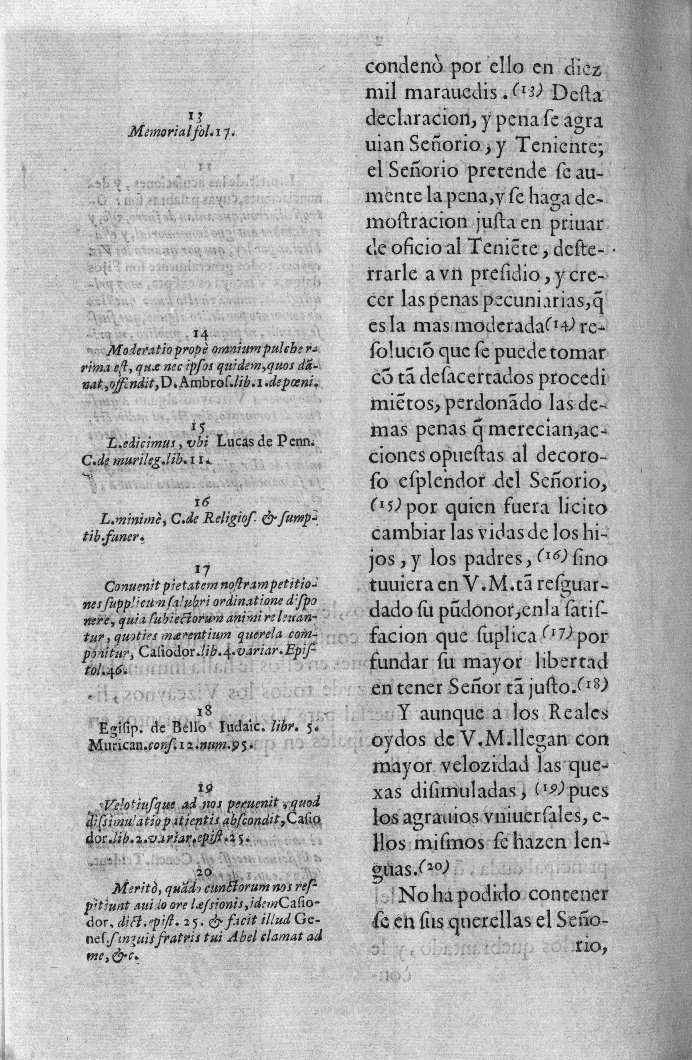 13
Memorial fol.17.
14
Moderatio propè omnium pulcher-
rima est, quæ nec ipsos quidem, quos dã-
nat, offendit, D. Ambros. lib. 1. de pœni.
15
L. edicimus, vbi Lucas de Penn.
C. de murileg. lib. 11.
16
L. minimè, C. de Religios. & sump-
tib. funer.
17
Conuenit pietatem nostram petitio-
nes supplicum salubri ordinatione dispo
nere, quia subiectorum animi releuan-
tur, quoties mærentium querela com-
ponitur, Casiodor. lib. 4. variar. Epis-
tol. 46.
18
Egisip. de Bello Iudaic. libr. 5.
Murican. cons. 12. num. 95.
19
Velotiusque ad nos peruenit, quod
dissimulatio patientis abscondit, Casio
dor. lib. 2. variar. epist. 25.
20
Meritò, quãdo cunctorum nos res-
pitiunt auido ore læssionis, idem Casio-
dor. dict. epist. 25. & facit illud Ge-
nes. sanguis fratris tui Abel clamat ad
me, &c.
condenò por ello en diez
mil marauedis. (13) Desta
declaracion, y pena se agra
uian Señorio, y Teniente;
el Señorio pretende se au-
mente la pena, y se haga de-
mostracion justa en priuar
de oficio al Teniẽte, deste-
rrarle a vn presidio, y cre-
cer las penas pecuniarias, q̃
es la mas moderada (14) re-
soluciõ que se puede tomar
cõ tã desacertados procedi
miẽtos, perdonãdo las de-
mas penas q̃ merecian, ac-
ciones opuestas al decoro-
so esplendor del Señorio,
(15) por quien fuera licito
cambiar las vidas de los hi-
jos, y los padres, (16) sino
tuuiera en V.M. tã resguar-
dado su pũdonor, en la satis-
facion que suplica (17) por
fundar su mayor libertad
en tener Señor tã justo. (18)
Y aunque a los Reales
oydos de V.M. llegan con
mayor velozidad las que-
xas disimuladas, (19) pues
los agrauios vniuersales, e-
llos mismos se hazen len-
guas. (20)
No ha podido contener
se en sus querellas el Seño-
rio,